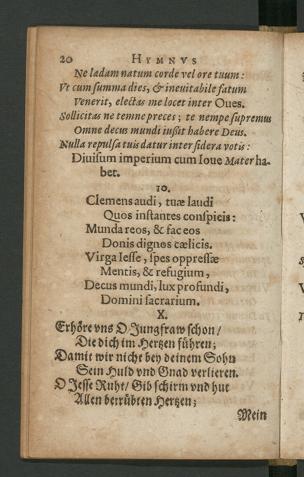 20 HYMNVS
Ne ladam natum corde vel ore tuum:
Vt cum summa dies, & ineuitabile fatum
Venerit, electas me locet inter Oues.
Sollicitas ne temne preces; te nempe supremus
Omne decus mundi iussit habere Deus.
Nulla repulsa tuis datur inter sidera votis:
Diuisum imperium cum Ioue Mater ha-
bet.
10.
Clemens audi, tuæ laudi
Quos instantes conspicis:
Munda reos, & fac eos
Donis dignos cælicis.
Virga Iesse, spes oppressæ
Mentis, & refugium,
Decus mundi, lux profundi,
Domini sacrarium.
X.
Erhöre vns O Jungfraw schon/
Die dich im Hertzen führen;
Damit wir nicht bey deinem Sohn
Sein Huld vnd Gnad verlieren.
O Jesse Ruht/ Gib schirm vnd hut
Allen betrübten Hertzen;
Mein